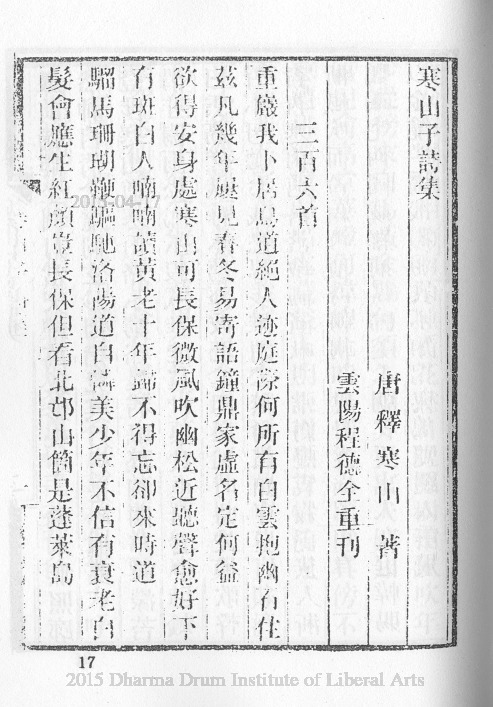 寒山子詩集
唐釋寒山著
雲陽程德全重刊
三百六首
重巖我卜居鳥道絕人迹庭際何所有白雲抱幽石住
茲凡幾年屢見春冬易寄語鐘鼎家虛名定何益
欲得安身處寒山可長保微風吹幽松近聽聲愈好下
有斑白人喃喃讀黃老十年歸不得忘卻來時道
騮馬珊瑚鞭驅馳洛陽道自憐美少年不信有衰老白
髮會應生紅顏豈長保但看北邙山箇是蓬萊島
2015-04-17
17
2015 Dharma Drum Institute of Liberal Arts